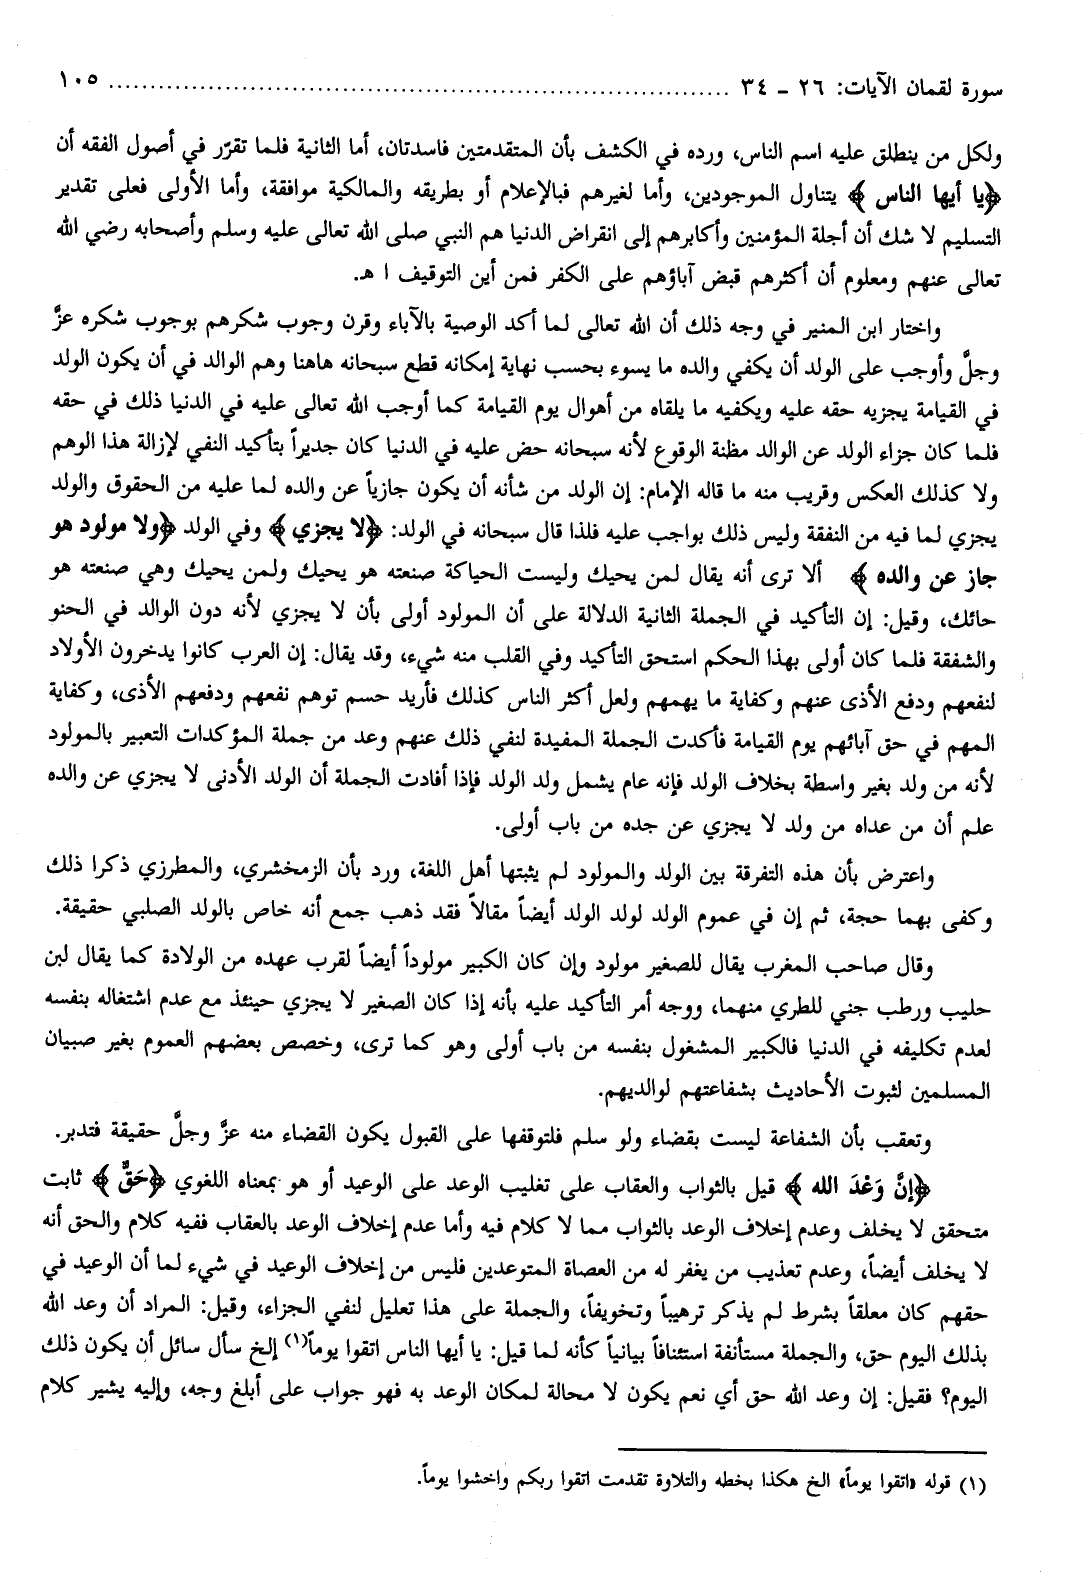 سورة لقمان الآيات: ٢٦ ـ ٣٤ ........................................................................ ١٠٥
ولكل من ينطلق عليه اسم الناس، ورده في الكشف بأن المتقدمتين فاسدتان، أما الثانية فلما تقرّر في أصول الفقه أن
﴿يا أيها الناس﴾ يتناول الموجودين، وأما لغيرهم فبالإعلام أو بطريقه والمالكية موافقة، وأما الأولى فعلى تقدير
التسليم لا شك أن أجلة المؤمنين وأكابرهم إلى انقراض الدنيا هم النبي صلى الله تعالى عليه وسلم وأصحابه رضي الله
تعالى عنهم ومعلوم أن أكثرهم قبض آباؤهم على الكفر فمن أين التوقيف ا هـ.
واختار ابن المنير في وجه ذلك أن الله تعالى لما أكد الوصية بالآباء وقرن وجوب شكرهم بوجوب شكره عزَّ
وجلَّ وأوجب على الولد أن يكفي والده ما يسوء بحسب نهاية إمكانه قطع سبحانه هاهنا وهم الوالد في أن يكون الولد
في القيامة يجزيه حقه عليه ويكفيه ما يلقاه من أهوال يوم القيامة كما أوجب الله تعالى عليه في الدنيا ذلك في حقه
فلما كان جزاء الولد عن الوالد مظنة الوقوع لأنه سبحانه حض عليه في الدنيا كان جديراً بتأكيد النفي لإزالة هذا الوهم
ولا كذلك العكس وقريب منه ما قاله الإمام: إن الولد من شأنه أن يكون جازياً عن والده لما عليه من الحقوق والولد
يجزي لما فيه من النفقة وليس ذلك بواجب عليه فلذا قال سبحانه في الولد: ﴿لا يجزي﴾ وفي الولد ﴿ولا مولود هو
جاز عن والده﴾ ألا ترى أنه يقال لمن يحيك وليست الحياكة صنعته هو يحيك ولمن يحيك وهي صنعته هو
حائك، وقيل: إن التأكيد في الجملة الثانية الدلالة على أن المولود أولى بأن لا يجزي لأنه دون الوالد في الحنو
والشفقة فلما كان أولى بهذا الحكم استحق التأكيد وفي القلب منه شيء، وقد يقال: إن العرب كانوا يدخرون الأولاد
لنفعهم ودفع الأذى عنهم وكفاية ما يهمهم ولعل أكثر الناس كذلك فأريد حسم توهم نفعهم ودفعهم الأذى، وكفاية
المهم في حق آبائهم يوم القيامة فأكدت الجملة المفيدة لنفي ذلك عنهم وعد من جملة المؤكدات التعبير بالمولود
لأنه من ولد بغير واسطة بخلاف الولد فإنه عام يشمل ولد الولد فإذا أفادت الجملة أن الولد الأدنى لا يجزي عن والده
علم أن من عداه من ولد لا يجزي عن جده من باب أولى.
واعترض بأن هذه التفرقة بين الولد والمولود لم يثبتها أهل اللغة، ورد بأن الزمخشري، والمطرزي ذكرا ذلك
وكفى بهما حجة، ثم إن في عموم الولد لولد الولد أيضاً مقالاً فقد ذهب جمع أنه خاص بالولد الصلبي حقيقة.
وقال صاحب المغرب يقال للصغير مولود وإن كان الكبير مولوداً أيضاً لقرب عهده من الولادة كما يقال لبن
حليب ورطب جني للطري منهما، ووجه أمر التأكيد عليه بأنه إذا كان الصغير لا يجزي حينئذ مع عدم اشتغاله بنفسه
لعدم تكليفه في الدنيا فالكبير المشغول بنفسه من باب أولى وهو كما ترى، وخصص بعضهم العموم بغير صبيان
المسلمين لثبوت الأحاديث بشفاعتهم لوالديهم.
وتعقب بأن الشفاعة ليست بقضاء ولو سلم فلتوقفها على القبول يكون القضاء منه عزَّ وجلَّ حقيقة فتدبر.
﴿إنَّ وَعْدَ الله﴾ قيل بالثواب والعقاب على تغليب الوعد على الوعيد أو هو بمعناه اللغوي ﴿حَقٌّ﴾ ثابت
متحقق لا يخلف وعدم إخلاف الوعد بالثواب مما لا كلام فيه وأما عدم إخلاف الوعد بالعقاب ففيه كلام والحق أنه
لا يخلف أيضاً، وعدم تعذيب من يغفر له من العصاة المتوعدين فليس من إخلاف الوعيد في شيء لما أن الوعيد في
حقهم كان معلقاً بشرط لم يذكر ترهيباً وتخويفاً، والجملة على هذا تعليل لنفي الجزاء، وقيل: المراد أن وعد الله
بذلك اليوم حق، والجملة مستأنفة استئنافاً بيانياً كأنه لما قيل: يا أيها الناس اتقوا يوماً(١) إلخ سأل سائل أن يكون ذلك
اليوم؟ فقيل: إن وعد الله حق أي نعم يكون لا محالة لمكان الوعد به فهو جواب على أبلغ وجه، وإليه يشير كلام
(١) قوله «اتقوا يوماً» الخ هكذا بخطه والتلاوة تقدمت اتقوا ربكم واخشوا يوماً.